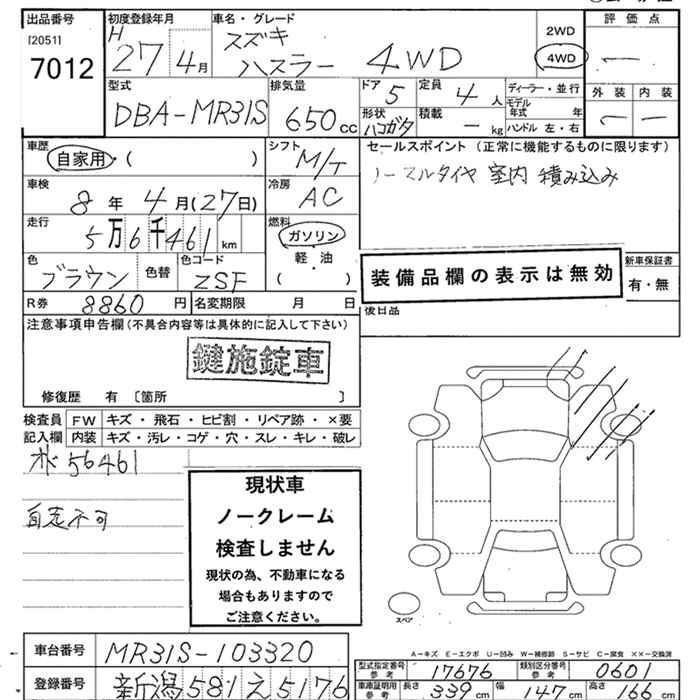 出品番号
[2051]
7012
初度登録年月
H 27 4月
車名・グレード
スズキ
ハスラー 4WD
2WD
4WD
評価点
—
外装 内装
— —
型式
DBA-MR31S
排気量
650cc
ドア 5
定員 4人
形状 ハコガタ
積載 — kg
ディーラー・並行
モデル年式 年
ハンドル 左・右
車歴
自家用・( )
シフト M/T
セールスポイント(正常に機能するものに限ります)
ノーマルタイヤ 室内 積み込み
車検
8年4月(27日)
冷房 AC
走行
5万6千461km
燃料
ガソリン
軽・油
( )
色 ブラウン
色替
色コード ZSF
装備品欄の表示は無効
新車保証書
有・無
R券 8860円
名変期限 月 日
後日品
注意事項申告欄(不具合内容等は具体的に記入して下さい)
鍵施錠車
修復歴 有 〔箇所 〕
検査員記入欄
FW キズ・飛石・ヒビ割・リペア跡・×要
内装 キズ・汚レ・コゲ・穴・スレ・キレ・破レ
56461
自走不可
現状車
ノークレーム
検査しません
現状の為、不動車になる
場合もありますので
ご注意ください。
スペア
A-キズ E-エクボ U-凹み W-補修跡 S-サビ C-腐食 ××-交換済
車台番号 MR31S-103320
登録番号 新潟581え5176
型式指定番号 参考 17676
類別区分番号 参考 0601
車庫証明用 参考
長さ 339cm 幅 147cm 高さ 166cm